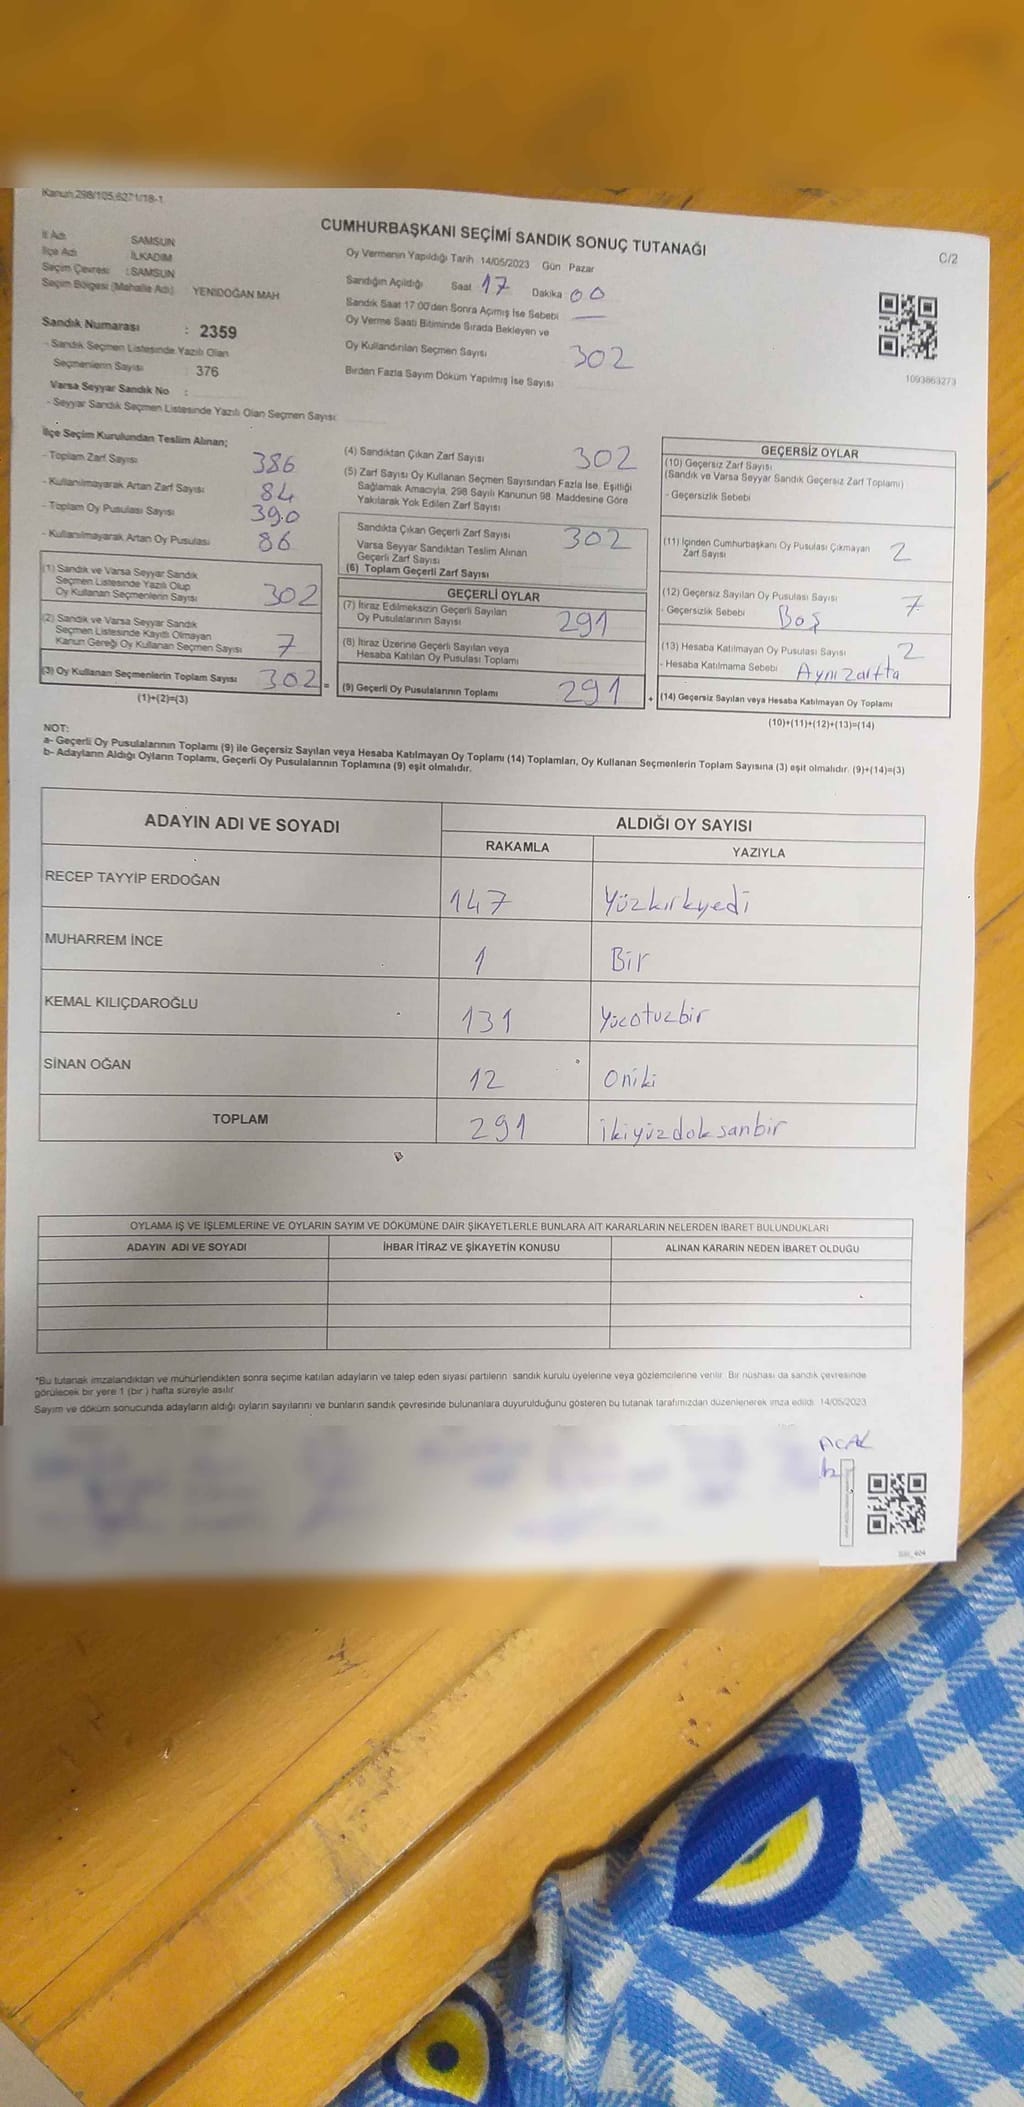 Kanun:298/105,6271/18-1
CUMHURBAŞKANI SEÇİMİ SANDIK SONUÇ TUTANAĞI
C/2
İl Adı SAMSUN
İlçe Adı İLKADIM
Seçim Çevresi : SAMSUN
Seçim Bölgesi (Mahalle Adı) YENİDOĞAN MAH
Oy Vermenin Yapıldığı Tarih 14/05/2023 Gün Pazar
Sandığın Açıldığı Saat 17 Dakika 00
Sandık Saat 17:00'den Sonra Açımış İse Sebebi —
Oy Verme Saati Bitiminde Sırada Bekleyen ve
Oy Kullandırılan Seçmen Sayısı 302
Birden Fazla Sayım Döküm Yapılmış İse Sayısı
1093863273
Sandık Numarası : 2359
- Sandık Seçmen Listesinde Yazılı Olan
Seçmenlerin Sayısı 376
Varsa Seyyar Sandık No :
- Seyyar Sandık Seçmen Listesinde Yazılı Olan Seçmen Sayısı:
İlçe Seçim Kurulundan Teslim Alınan;
- Toplam Zarf Sayısı 386
- Kullanılmayarak Artan Zarf Sayısı 84
- Toplam Oy Pusulası Sayısı 390
- Kullanılmayarak Artan Oy Pusulası 86
(1) Sandık ve Varsa Seyyar Sandık
Seçmen Listesinde Yazılı Olup
Oy Kullanan Seçmenlerin Sayısı 302
(2) Sandık ve Varsa Seyyar Sandık
Seçmen Listesinde Kayıtlı Olmayan
Kanun Gereği Oy Kullanan Seçmen Sayısı 7
(3) Oy Kullanan Seçmenlerin Toplam Sayısı 302 =
(1)+(2)=(3)
(4) Sandıktan Çıkan Zarf Sayısı 302
(5) Zarf Sayısı Oy Kullanan Seçmen Sayısından Fazla İse, Eşitliği
Sağlamak Amacıyla, 298 Sayılı Kanunun 98. Maddesine Göre
Yakılarak Yok Edilen Zarf Sayısı
Sandıkta Çıkan Geçerli Zarf Sayısı 302
Varsa Seyyar Sandıktan Teslim Alınan
Geçerli Zarf Sayısı
(6) Toplam Geçerli Zarf Sayısı
GEÇERLİ OYLAR
(7) İtiraz Edilmeksizin Geçerli Sayılan
Oy Pusulalarının Sayısı 291
(8) İtiraz Üzerine Geçerli Sayılan veya
Hesaba Katılan Oy Pusulası Toplamı
(9) Geçerli Oy Pusulalarının Toplamı 291 +
GEÇERSİZ OYLAR
(10) Geçersiz Zarf Sayısı
(Sandık ve Varsa Seyyar Sandık Geçersiz Zarf Toplamı)
- Geçersizlik Sebebi
(11) İçinden Cumhurbaşkanı Oy Pusulası Çıkmayan
Zarf Sayısı 2
(12) Geçersiz Sayılan Oy Pusulası Sayısı 7
- Geçersizlik Sebebi Boş
(13) Hesaba Katılmayan Oy Pusulası Sayısı 2
- Hesaba Katılmama Sebebi Aynı zarfta
(14) Geçersiz Sayılan veya Hesaba Katılmayan Oy Toplamı
(10)+(11)+(12)+(13)=(14)
NOT:
a- Geçerli Oy Pusulalarının Toplamı (9) ile Geçersiz Sayılan veya Hesaba Katılmayan Oy Toplamı (14) Toplamları, Oy Kullanan Seçmenlerin Toplam Sayısına (3) eşit olmalıdır. (9)+(14)=(3)
b- Adayların Aldığı Oyların Toplamı, Geçerli Oy Pusulalarının Toplamına (9) eşit olmalıdır.
ADAYIN ADI VE SOYADI ALDIĞI OY SAYISI
RAKAMLA YAZIYLA
RECEP TAYYİP ERDOĞAN 147 Yüzkırkyedi
MUHARREM İNCE 1 Bir
KEMAL KILIÇDAROĞLU 131 Yücotuzbir
SİNAN OĞAN 12 Oniki
TOPLAM 291 ikiyüzdoksanbir
OYLAMA İŞ VE İŞLEMLERİNE VE OYLARIN SAYIM VE DÖKÜMÜNE DAİR ŞİKAYETLERLE BUNLARA AİT KARARLARIN NELERDEN İBARET BULUNDUKLARI
ADAYIN ADI VE SOYADI İHBAR İTİRAZ VE ŞİKAYETİN KONUSU ALINAN KARARIN NEDEN İBARET OLDUĞU
*Bu tutanak imzalandıktan ve mühürlendikten sonra seçime katılan adayların ve talep eden siyasi partilerin sandık kurulu üyelerine veya gözlemcilerine verilir. Bir nüshası da sandık çevresinde
görülecek bir yere 1 (bir ) hafta süreyle asılır.
Sayım ve döküm sonucunda adayların aldığı oyların sayılarını ve bunların sandık çevresinde bulunanlara duyurulduğunu gösteren bu tutanak tarafımızdan düzenlenerek imza edildi. 14/05/2023